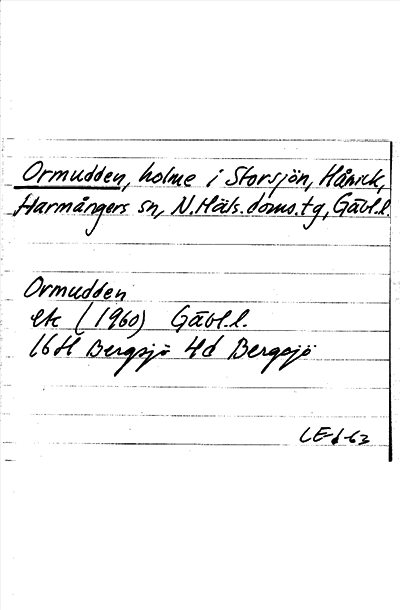 Ormudden, holme i Storsjön, Hånick,
Harmångers sn, N. Häls. doms. tg, Gävl. l.
Ormudden
ek (1960) Gävl. l.
16H Bergsjö 4d Bergsjö